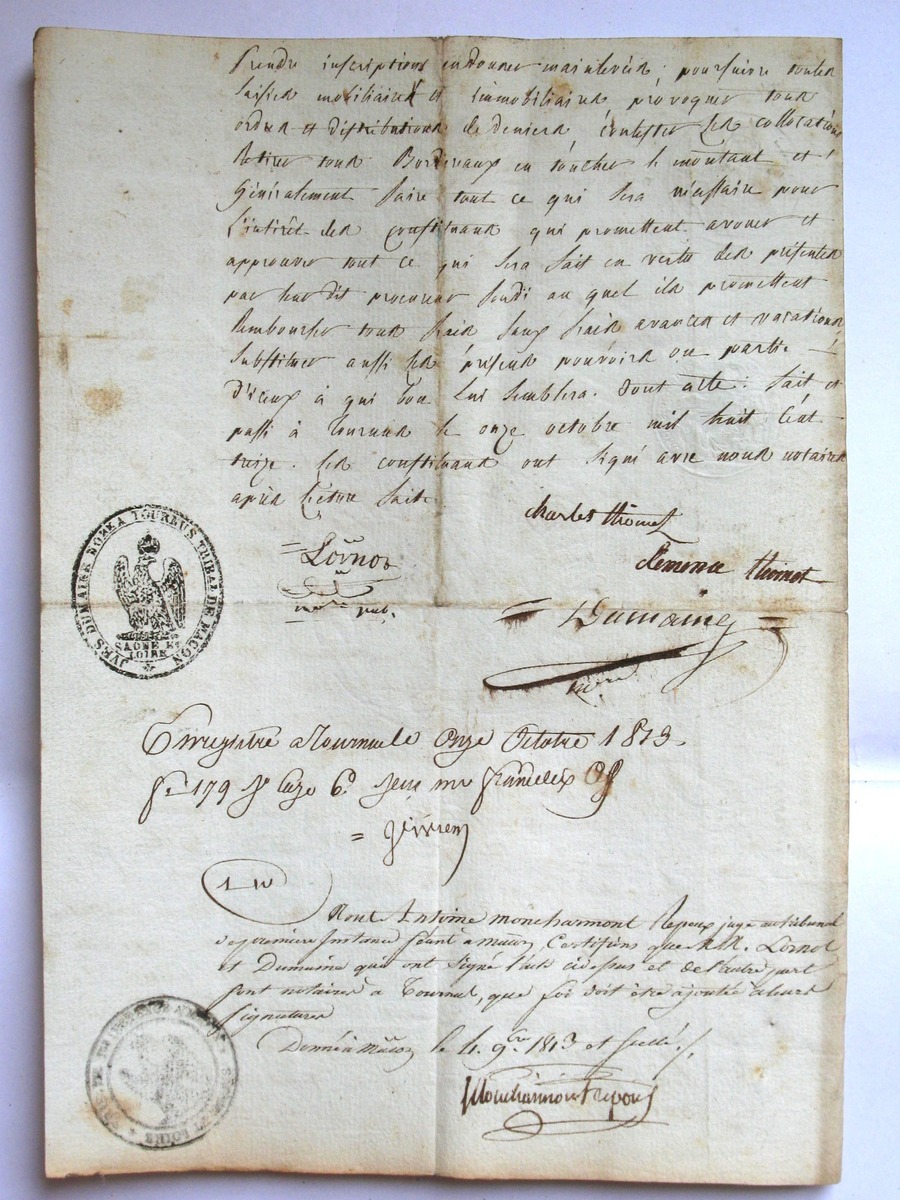 prendre inscriptions en donner mainlevée, poursuivre toutes
saisies mobiliaires et immobiliaires provoquer tous
ordres et distributions de deniers, contester les collocations
Retirer tous Bordereaux en toucher le montant et
Généralement faire tout ce qui sera nécessaire pour
l'intérêt des constituans qui promettent avouer et
approuver tout ce qui sera fait en vertu des présentes
par leur dit procureur fondé au quel ils promettent
Rembourser tous frais faux frais avances et vacations
Substituer aussi les présens pouvoirs ou partie
D'iceux à qui bon lui semblera. Dont acte: fait et
passé à Tournus le onze octobre mil huit Cent
treize. Les constituans ont signé avec nous notaires
après lecture faite
charles thomet
Lornot
clemence thomet
Dumaine
Saone et
Loire
Enregistré a Tournus le Onze Octobre 1813.
fo 179 Ro Case 6e
1
Nous Antoine moncharmont Repoux juge au tribunal
de premiere Instance Séant a macon, Certifions que MM. Lornot
et Dumaine qui ont signé l'acte cidessus et de l'autre part
sont notaires a Tournus, que foi doit être ajoutée a leurs
signatures
Donné a Macon le 4. 9bre 1813 et scellé
Moncharmont Repoux